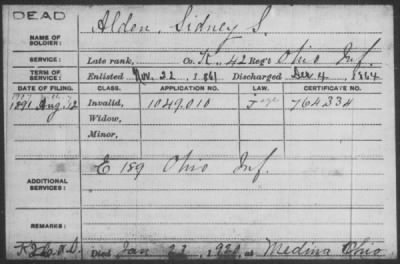 DEAD
NAME OF SOLDIER: Alden, Sidney S.
SERVICE: Late rank, Co. K, 42 Reg't Ohio Inf.
TERM OF SERVICE: Enlisted Nov. 22, 1861 Discharged Dec 4, 1864
DATE OF FILING. CLASS. APPLICATION NO. LAW. CERTIFICATE NO.
1891 Aug. 12 Invalid, 1049.010 764334
Widow,
Minor,
ADDITIONAL SERVICES: E 189 Ohio Inf.
REMARKS:
Died Jan 22, at Medina Ohio